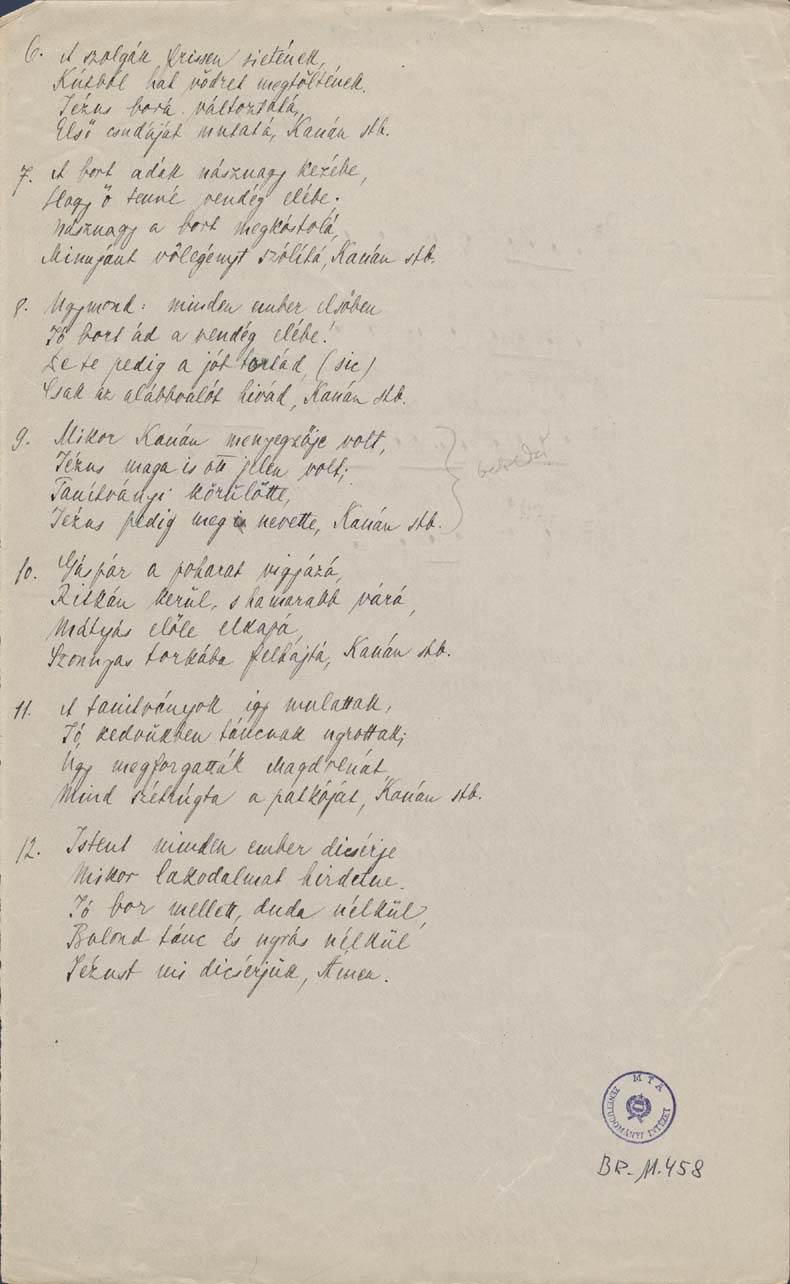 6. A szolgák frissen sietének,
Kútból hat vödret megtöltének.
Jézus borá változtatá,
Első csudáját mutatá, Kanán stb.
7. A bort adák násznagy kezébe,
Hogy ő tenné vendég elébe;
Násznagy a bort megkóstolá,
Minnjánt vőlegényt szólítá, Kanán stb.
8. Ugymond: minden ember elsőben
Jó bort ád a vendég elébe!
De te pedig a jót tartád, (sic)
Csak az alábbvalót hivád, Kanán stb.
9. Mikor Kanán menyegzője volt,
Jézus maga is ott jelen volt;
Tanítványi körülötte,
Jézus pedig meg is nevette, Kanán stb.
10. Gáspár a poharat vigjázá,
Ritkán kerül, s hamarabb várá,
Mátyás előle elkapá,
Szomjas torkába felhajtá, Kanán stb.
11. A tanitványok igy mulattak,
Jó kedvükben táncnak ugrottak;
Ugy megforgatták Magdolnát
Mind szétrúgta a patkóját, Kanán stb.
12. Istent minden ember dicsérje
Mikor lakodalmat hirdetne.
Jó bor mellett, duda nélkül,
Bolond tánc és ugrás nélkül
Jézust mi dicsérjük, Ámen.
MTA
ZENETUDOMÁNYI INTÉZET
BR-11.458